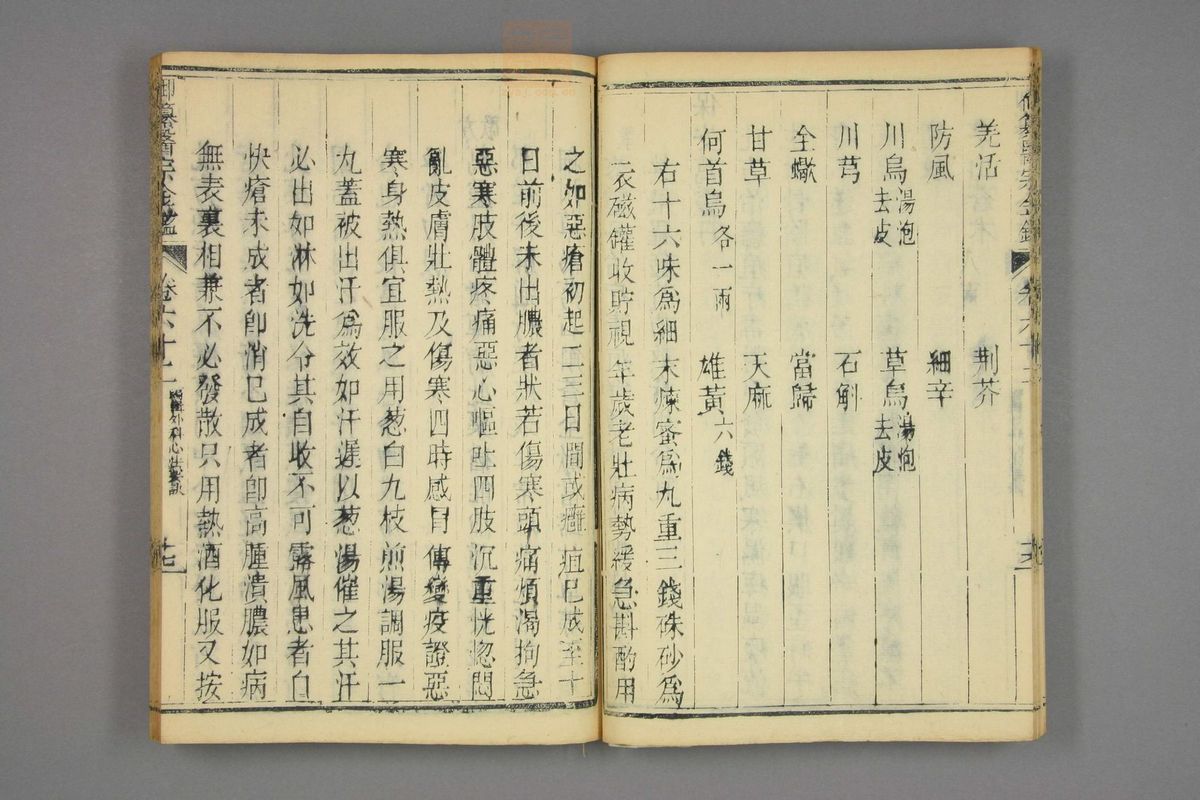 羌活　荆芥
防風　細辛
川烏湯泡去皮　草烏湯泡去皮
川芎　石斛
全蠍　當歸
甘草　天麻
何首烏各一兩　雄黃六錢
右十六味爲細末煉蜜爲丸重三錢硃砂爲
衣磁罐收貯視年歲老壯病勢緩急斟酌用
之如惡瘡初起二三日間或癰疽已成至十
日前後未出膿者狀若傷寒頭痛煩渴拘急
惡寒肢體疼痛惡心嘔吐四肢沉重恍惚悶
亂皮膚壯熱及傷寒四時感冒傳變疫證惡
寒身熱俱宜服之用葱白九枝煎湯調服一
丸蓋被出汗爲效如汗遲以葱湯催之其汗
必出如淋如洗令其自收不可露風患者自
快瘡未成者卽消已成者卽高腫潰膿如病
無表裏相兼不必發散只用熱酒化服又按
御纂醫宗金鑑　卷六十二　編輯外科心法要訣　十七